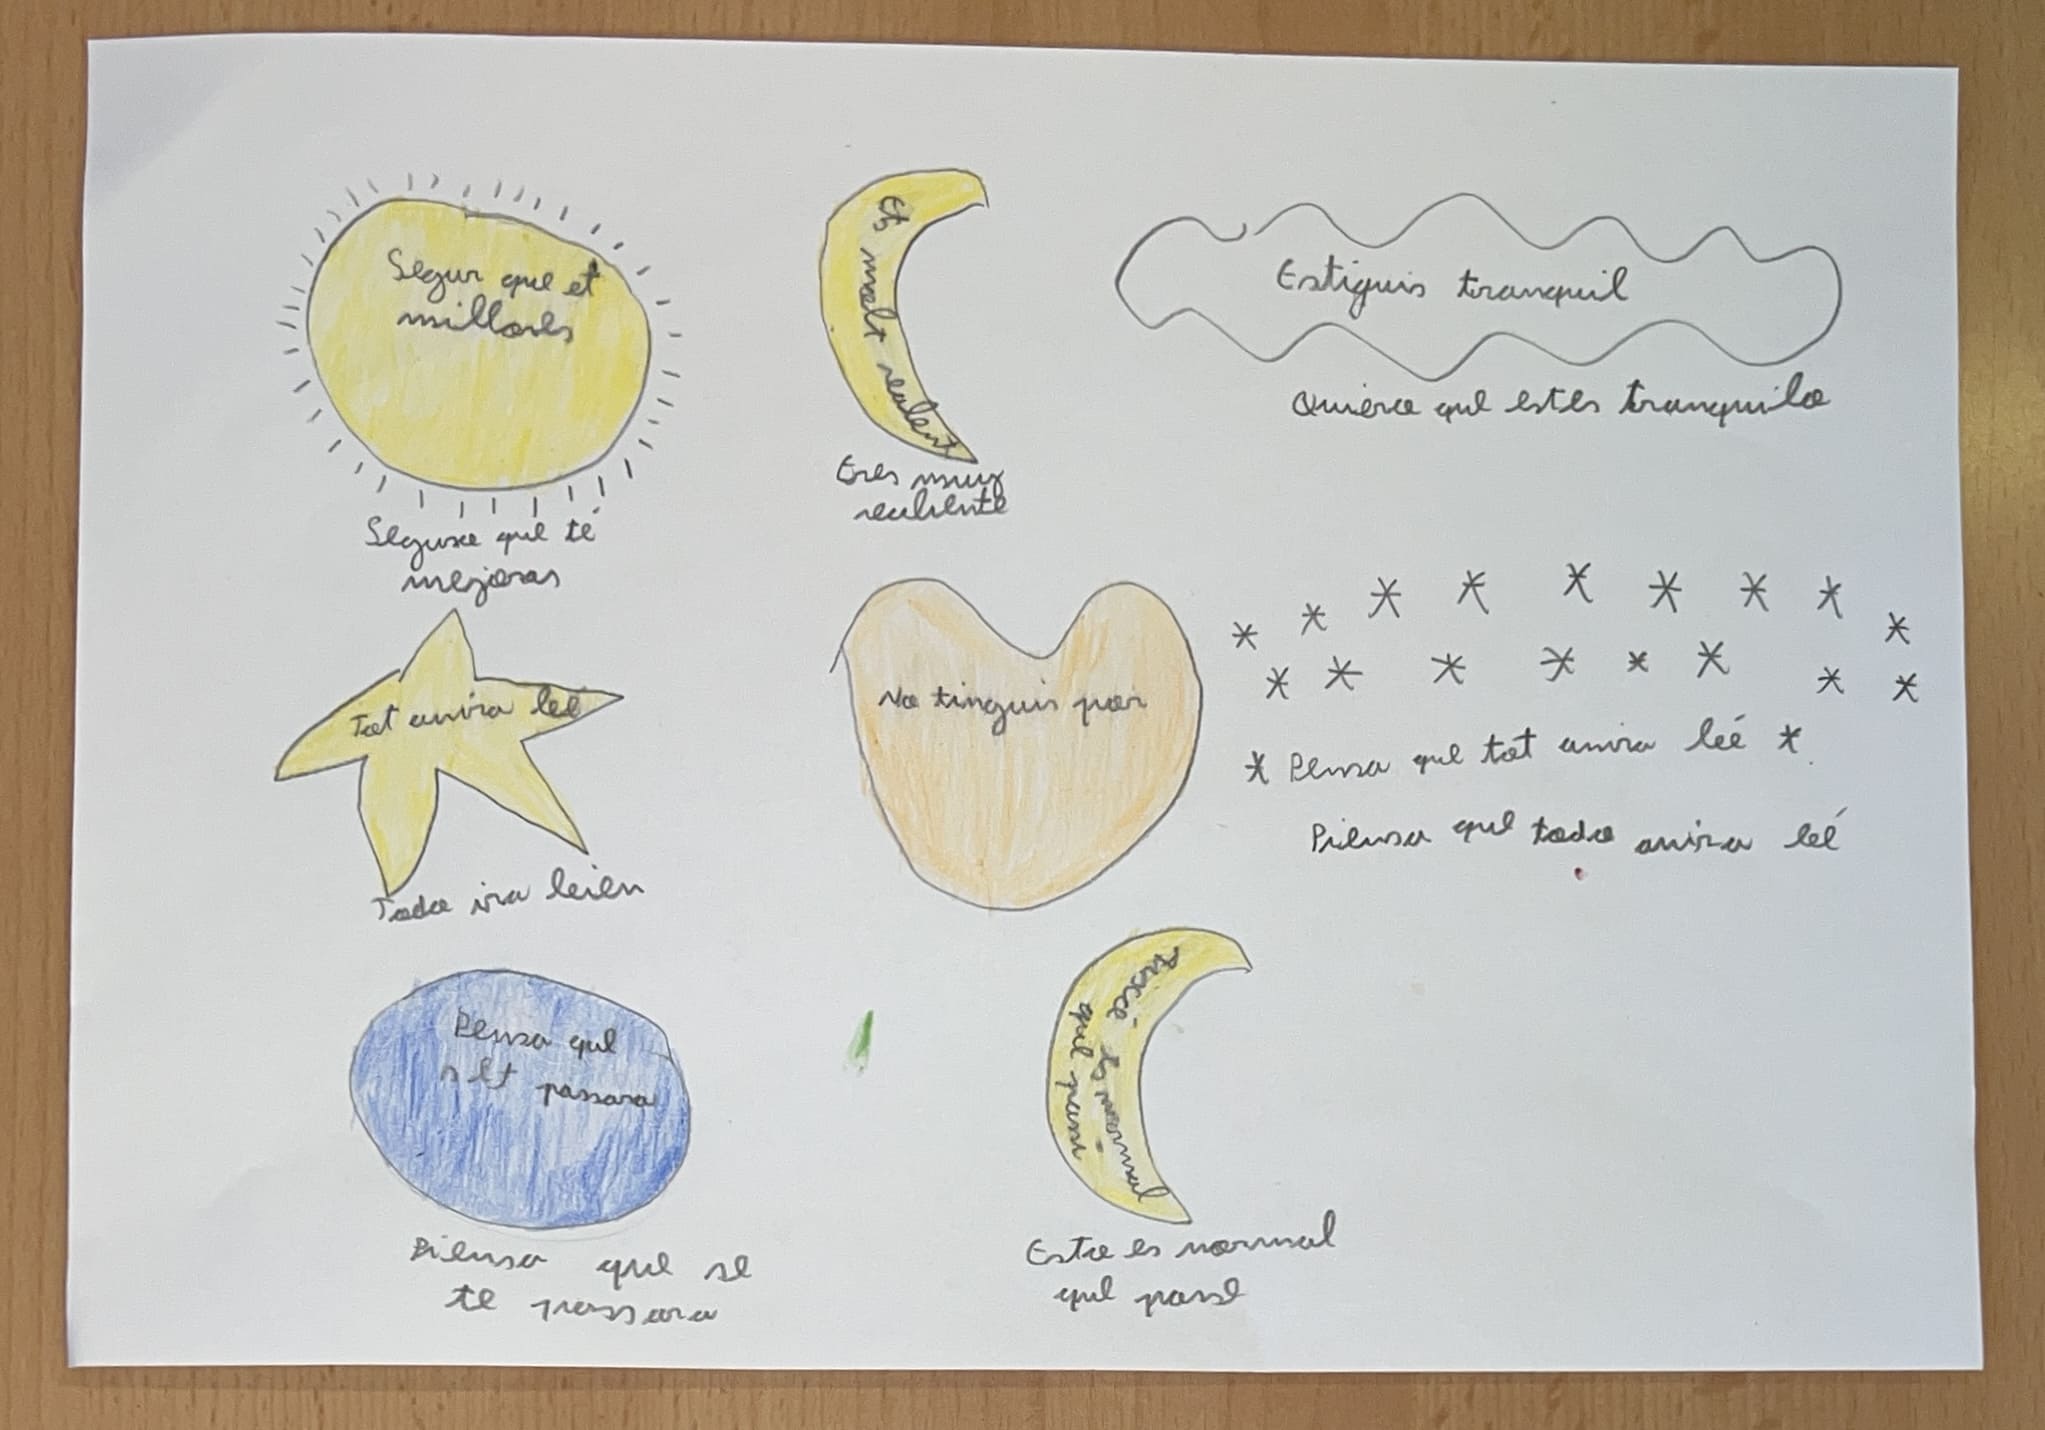 Segur que et
millores
Seguro que té
mejoras
Ets molt valent
Eres muy
valiente
Estiguis tranquil
Quiero que estes tranquilo
Tot anira bé
Todo ira bien
No tinguis por
* Pensa que tot anira bé *
Piensa que todo anira bé
Pensa que
s et passara
Piensa que se
te passara
Aixóe és normal
que passi
Esto es normal
que passe